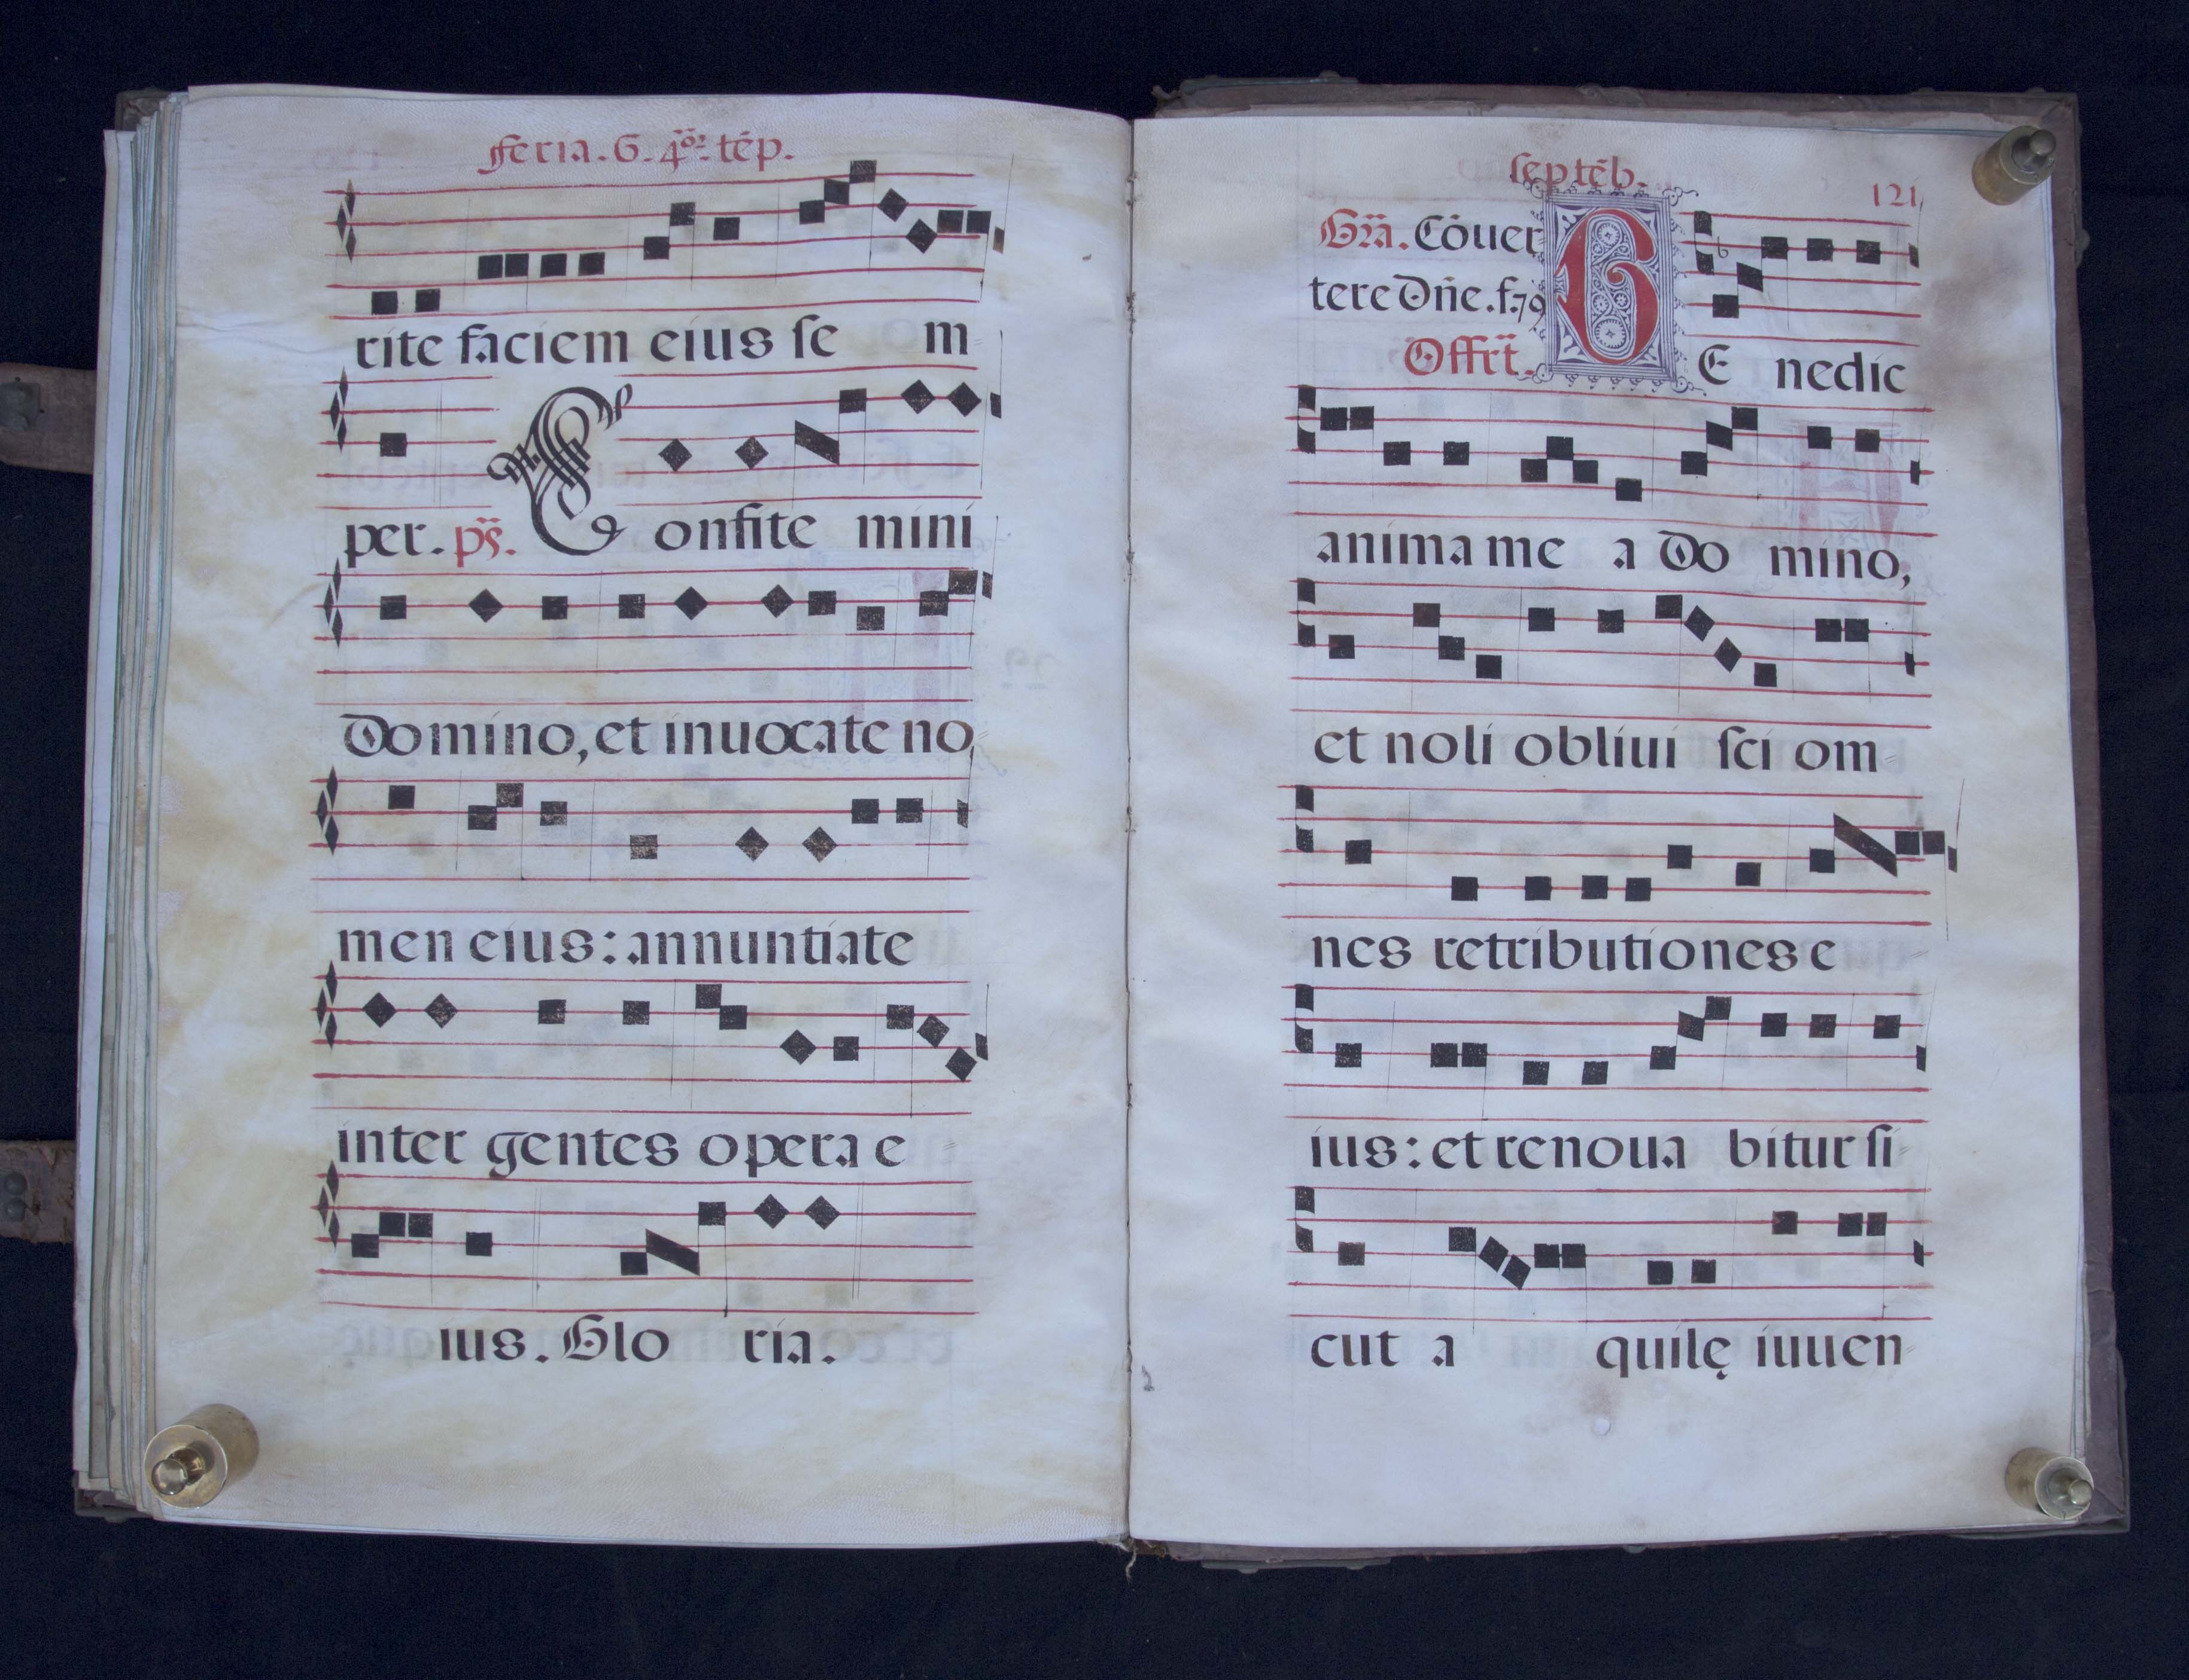 feria. 6. 4.ᵒʳ tẽp.
rite faciem eius se m
per. ps̈. Confite mini
Domino, et inuocate no
men eius: annuntiate
inter gentes opera e
ius. Glo ria.
septẽb.
121
Gra̋. Cõuer
tere Dñe. f. 79
Offrt̋.
BE nedic
anima me a Do mino,
et noli obliui sci om
nes retributiones e
ius: et renoua bitur si
cut a quilę iuuen